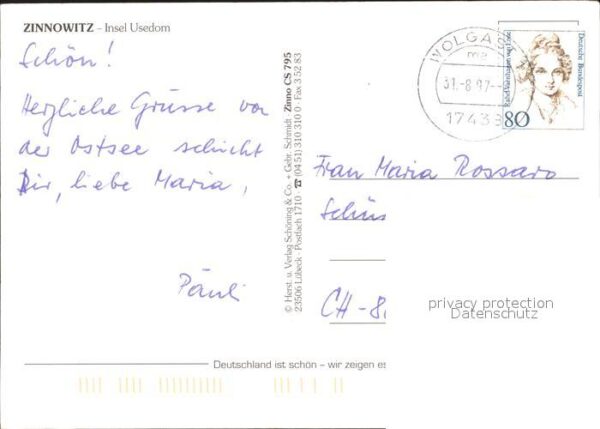 ZINNOWITZ – Insel Usedom
Schön!
Herzliche Grüsse von
der Ostsee schickt
Dir, liebe Maria,
Päuli
© Herst. u. Verlag Schöning & Co. + Gebr. Schmidt · Zinno CS 795
23506 Lübeck · Postfach 1710 · ☎ (04 51) 310 310 0 · Fax 3 52 83
WOLGAST
mc
31.-8.97.--
17438
Deutsche Bundespost
80
Frau Maria Rossaro
Schüs
CH-8
privacy protection
Datenschutz
Deutschland ist schön – wir zeigen es